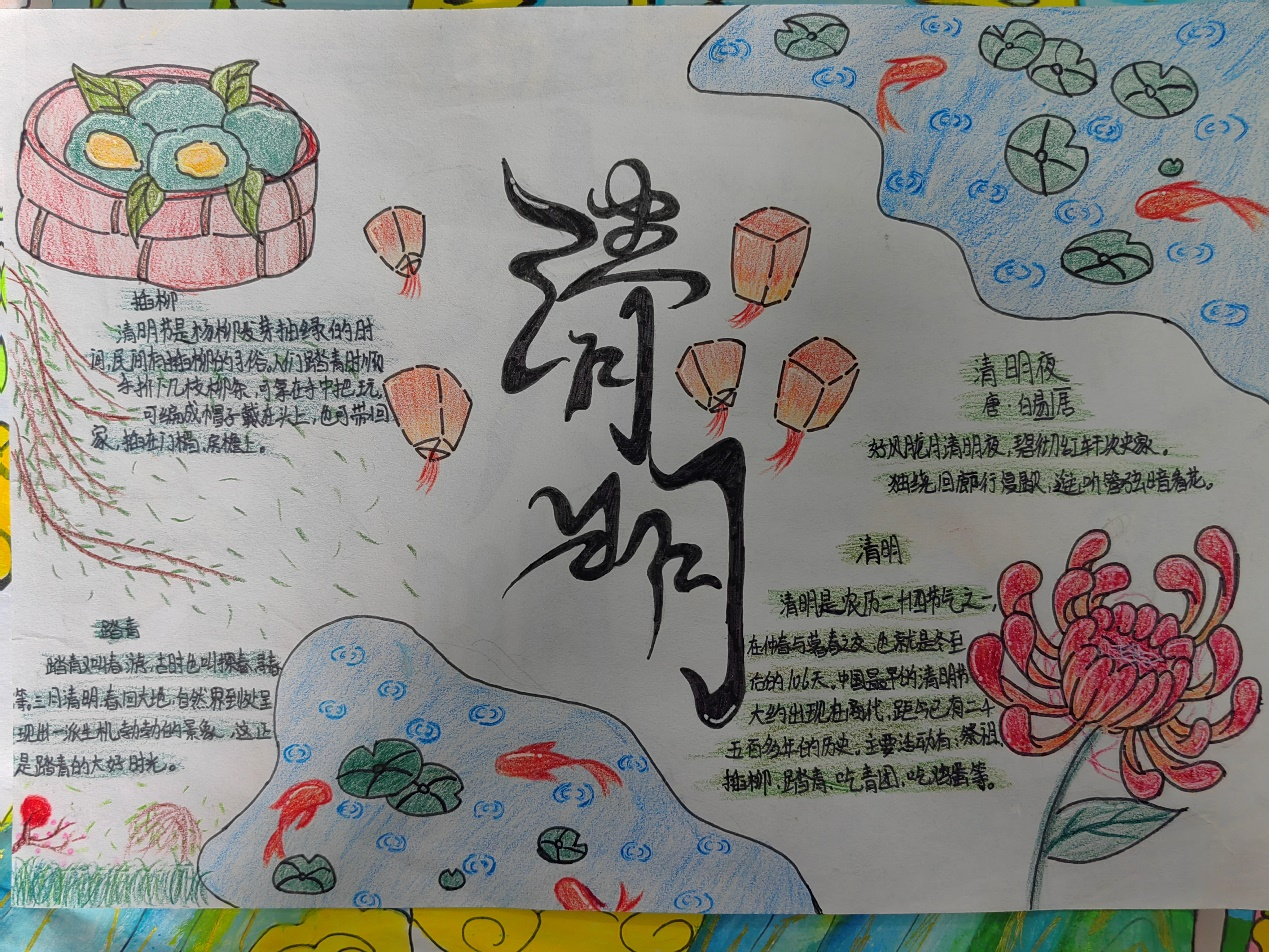 清明
插柳
清明节是杨柳发芽抽绿的时
间,民间有插柳的习俗。人们踏青时顺
手折下几枝柳条,可拿在手中把玩,
可编成帽子戴在头上,也可带回
家,插在门楣、房檐上。
踏青
踏青又叫春游,古时也叫探春、寻春
等。三月清明,春回大地,自然界到处呈
现出一派生机勃勃的景象,这正
是踏青的大好时光。
清明夜
唐 白居
好风胧月清明夜,碧砌红轩次史家。
独绕回廊行复歇,遥听管弦暗看花。
清明
清明是农历二十四节气之一,
在仲春与暮春之交,也就是冬至
后的106天。中国最早的清明节
大约出现在周代,距今已有二千
五百多年的历史,主要活动有:祭祖、
插柳、踏春、吃青团、吃鸡蛋等。